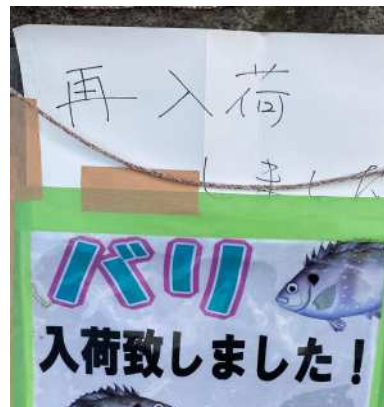 再入荷
しました
バリ
入荷致しました！